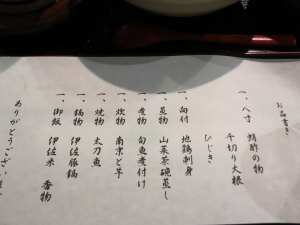 お品書き
一、八寸 蛸酢の物
千切り大根
ひじき
一、向付 地鶏刺身
一、蒸物 山菜茶碗蒸し
一、煮物 旬魚煮付け
一、炊物 南京と芋
一、焼物 太刀魚
一、鍋物 伊佐豚鍋
一、御飯 伊佐米 香物
ありがとうござい